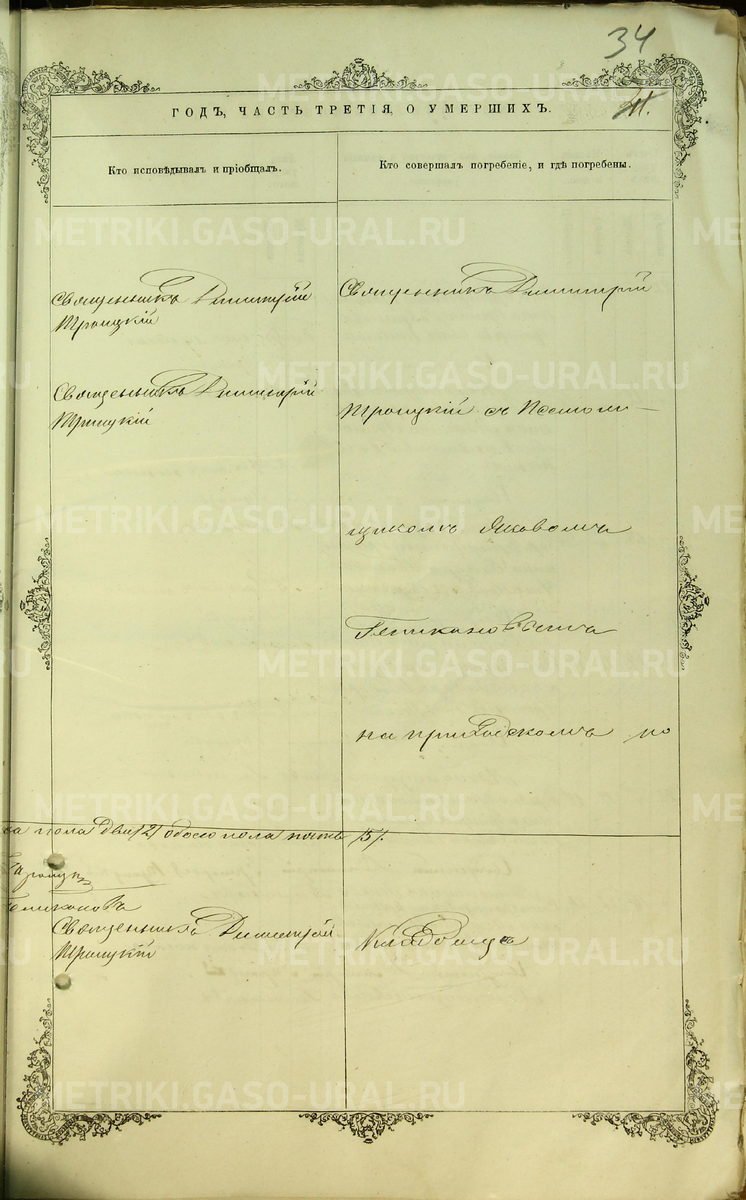 34
ГОДЪ, ЧАСТЬ ТРЕТІЯ, О УМЕРШИХЪ.
Кто исповѣдывалъ и пріобщалъ.
Кто совершалъ погребеніе, и гдѣ погребены.
Священникъ Димитрій
Троицкій
Священникъ Димитрій
Троицкій
Священникъ Димитрій
Троицкій с
Яковомъ
на приходскомъ
пола два /2/ обоего пола пять /5/.
Священникъ Димитрій
Троицкій
кладбищѣ
METRIKI.GASO-URAL.RU